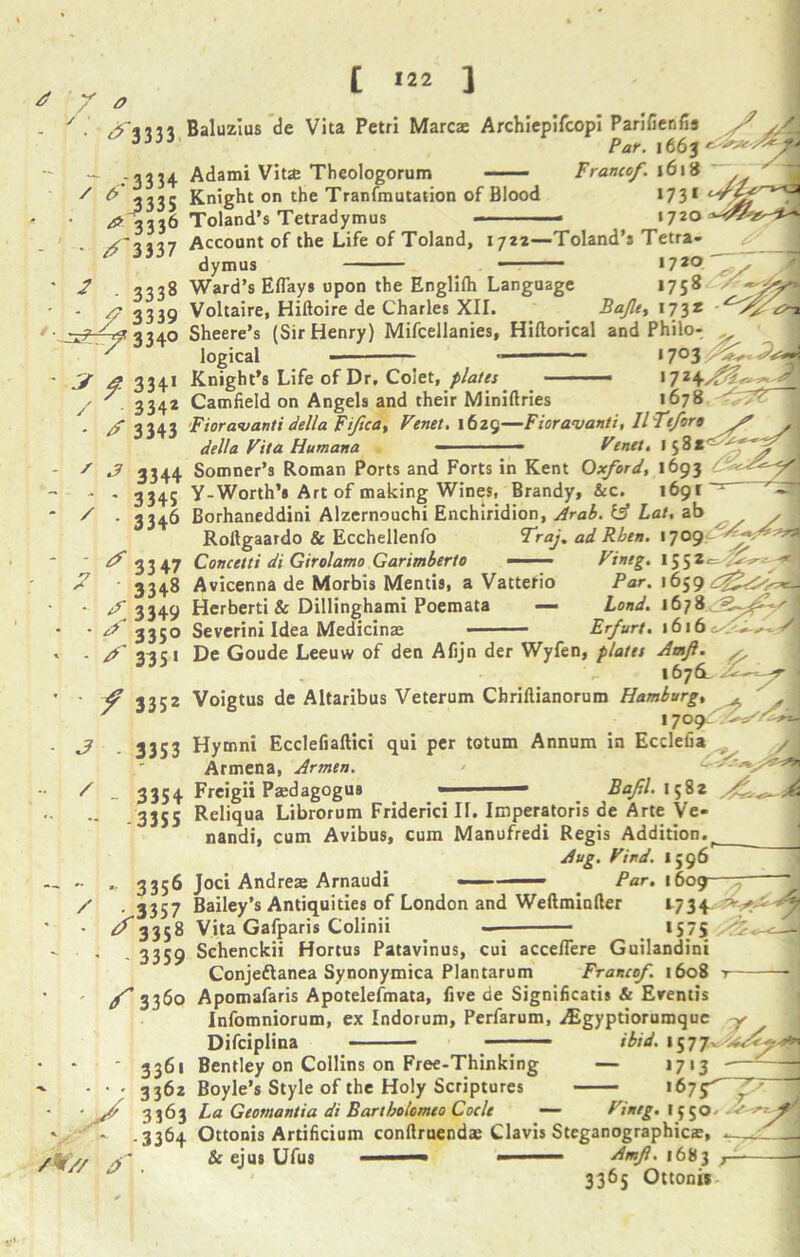 [ 122 ]
3333 Baluzius de Vita Petri Marcæ Archiepiſcopi Pariſienſis
Par. 1663
3334 Adami Vitæ Theologorum —— Francof. 1618
3335 Knight on the Tranſmutation of Blood 1731
3336 Toland's Tetradymus —— 1720
3337 Account of the Life of Toland, 1722—Toland's Tetra-
dymus —— —— 1720
3338 Ward's Eſſays upon the Engliſh Language 1758
3339 Voltaire, Hiſtoire de Charles XII. Baſle, 1732
3340 Sheere's (Sir Henry) Miſcellanies, Hiſtorical and Philo-
logical —— —— 1703
3341 Knight's Life of Dr. Colet, plates —— 1724
3342 Camfield on Angels and their Miniſtries 1678
3343 Fioravanti della Fiſica, Venet. 1629—Fioravanti, Il Teſoro
della Vita Humana —— Venet. 1582
3344 Somner's Roman Ports and Forts in Kent Oxford, 1693
3345 Y-Worth's Art of making Wines, Brandy, &c. 1691
3346 Borhaneddini Alzernouchi Enchiridion, Arab. & Lat. ab
Roſtgaardo & Ecchellenſo Traj. ad Rhen. 1709
3347 Concetti di Girolamo Garimberto —— Vineg. 1552
3348 Avicenna de Morbis Mentis, a Vatterio Par. 1659
3349 Herberti & Dillinghami Poemata — Lond. 1678
3350 Severini Idea Medicinæ —— Erfurt. 1616
3351 De Goude Leeuw of den Aſijn der Wyſen, plates Amſt.
1676
3352 Voigtus de Altaribus Veterum Chriſtianorum Hamburg,
1709
3353 Hymni Eccleſiaſtici qui per totum Annum in Eccleſia
Armena, Armen.
3354 Freigii Pædagogus —— Baſil. 1582
3355 Reliqua Librorum Friderici II. Imperatoris de Arte Ve-
nandi, cum Avibus, cum Manufredi Regis Addition.
Aug. Vind. 1596
3356 Joci Andreæ Arnaudi —— Par. 1609
3357 Bailey's Antiquities of London and Weſtminſter 1734
3358 Vita Gaſparis Colinii —— 1575
3359 Schenckii Hortus Patavinus, cui acceſſere Guilandini
Conjectanea Synonymica Plantarum Francof. 1608
3360 Apomaſaris Apoteleſmata, ſive de Significatis & Eventis
Inſomniorum, ex Indorum, Perſarum, Ægyptiorumque
Diſciplina —— —— ibid. 1577
3361 Bentley on Collins on Free-Thinking — 1713
3362 Boyle's Style of the Holy Scriptures —— 1675
3363 La Geomantia di Bartholomeo Cocle — Vineg. 1550
3364 Ottonis Artificium conſtruendæ Clavis Steganographicæ,
& ejus Uſus —— —— Amſt. 1683
3365 Ottonis